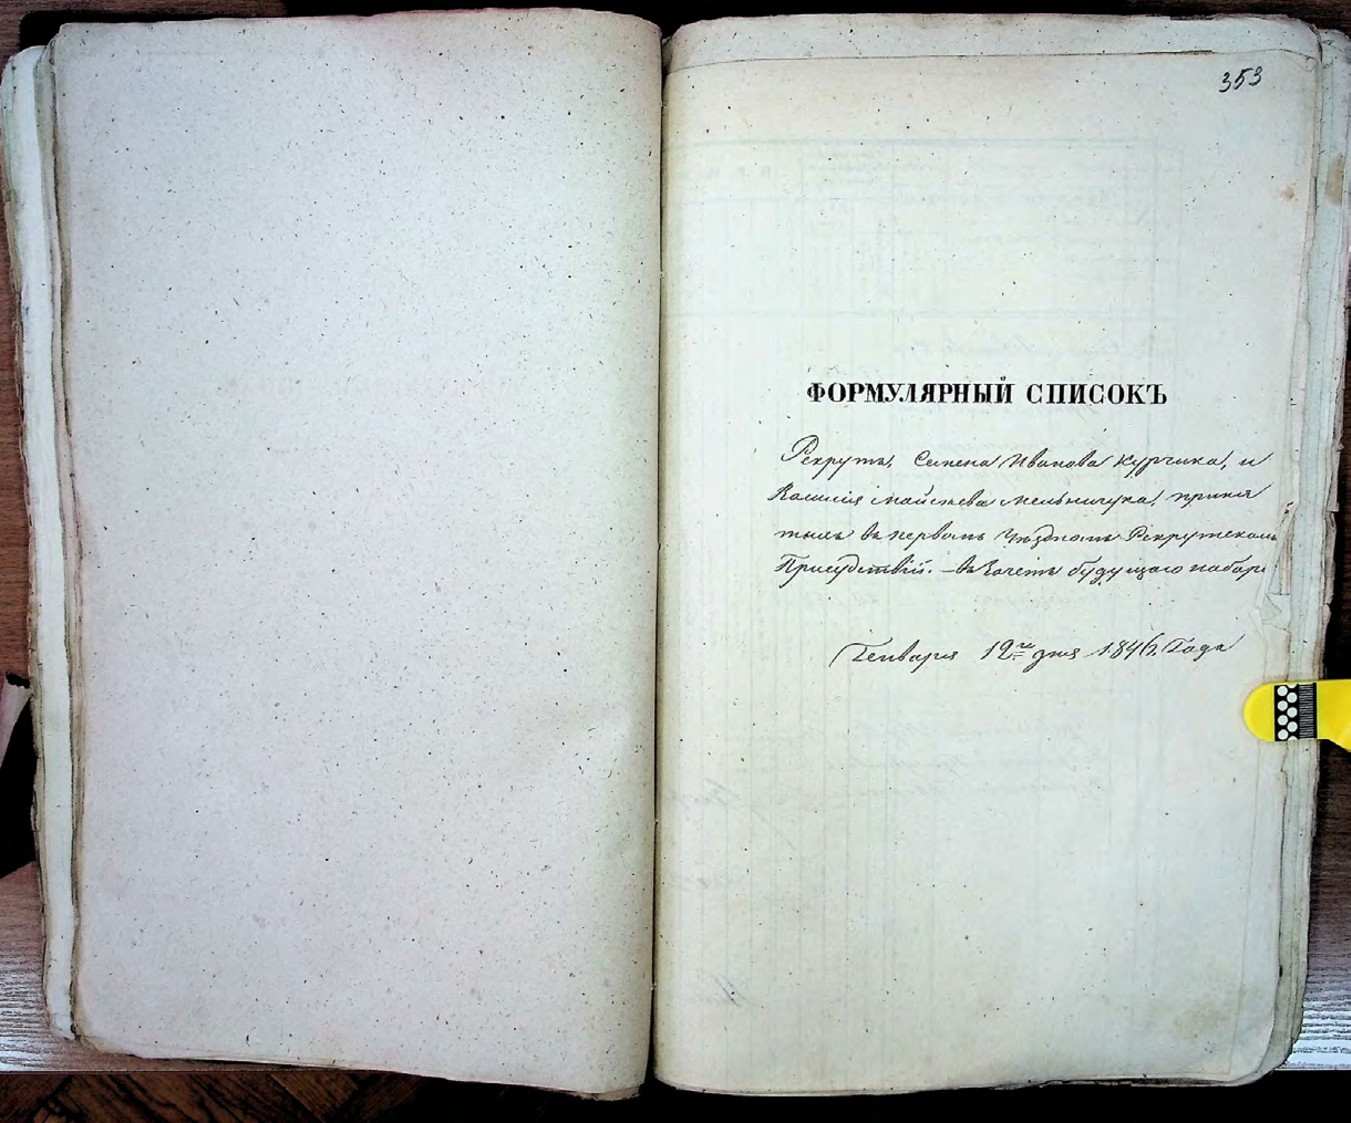 353
ФОРМУЛЯРНЫЙ СПИСОКЪ
Рекрутъ, Семена Иванова Курчика, и
Василия Мельничука, приня
тыхъ въ первомъ Уѣздномъ Рекрутскомъ
Присудствій. – въ зачетъ будущаго набора
Генваря 12го дня 1846. Года